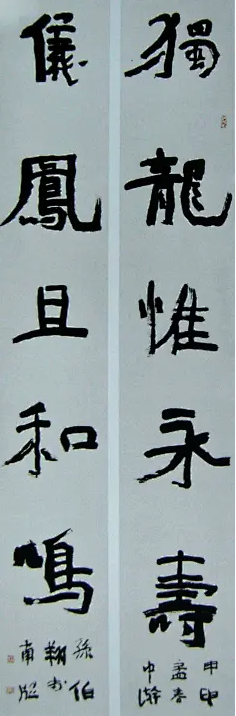 獨龍惟永壽
甲申
孟春
中澣
儀鳳且和鳴
孫伯
翔書
南